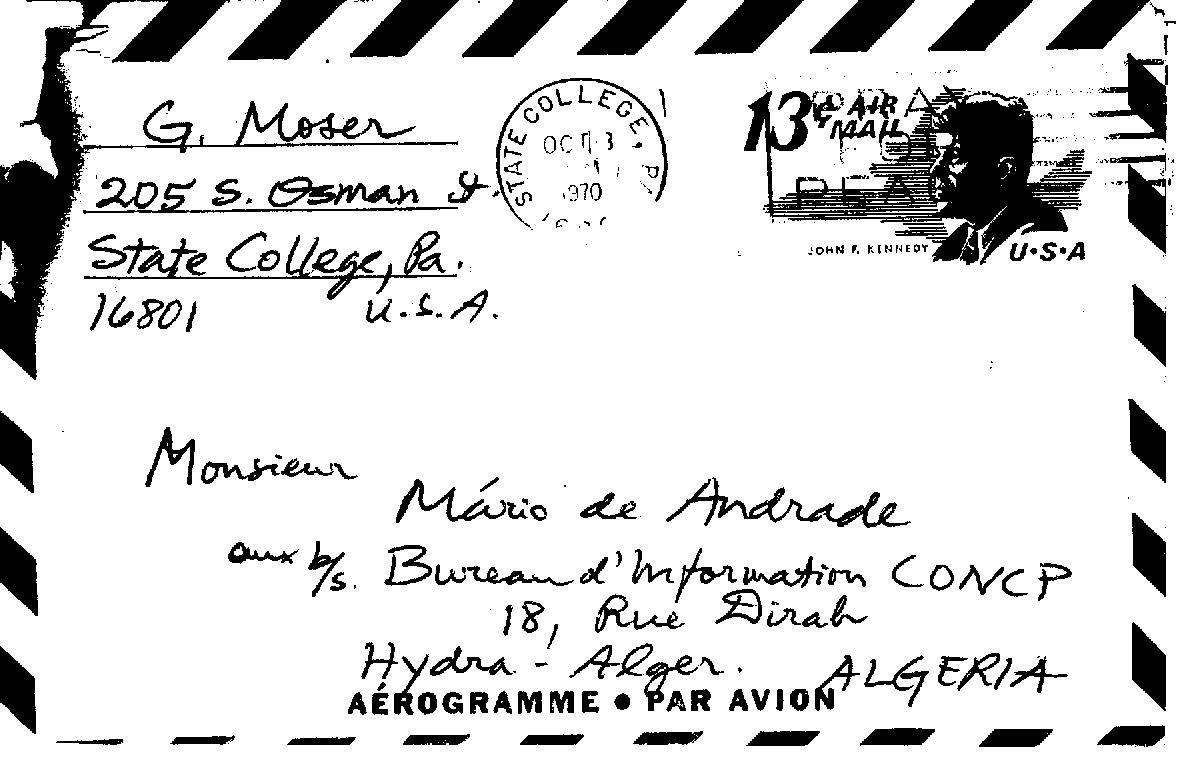 G. Moser
205 S. Osman St.
State College, Pa.
16801 U.S.A.
STATE COLLEGE, PA
OCT 3
1970
13¢ AIR
MAIL
PRAY
FOR
PEA
JOHN F. KENNEDY
U·S·A
Monsieur
Mário de Andrade
aux b/s. Bureau d'Information CONCP
18, Rue Dirah
Hydra - Alger. ALGERIA
AÉROGRAMME • PAR AVION